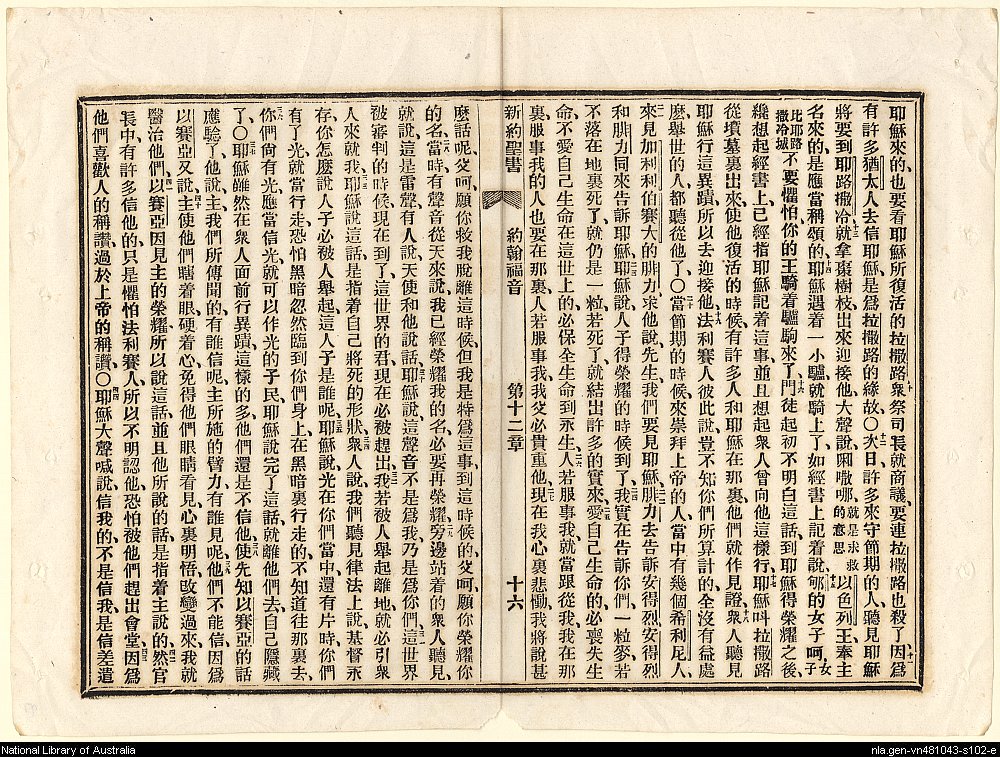 耶穌來的也要看耶穌所復活的拉撒路衆祭司長就商議要連拉撒路也殺了因爲
有許多猶太人去信耶穌是爲拉撒路的緣故○次日許多來守節期的人聽見耶穌
將要到耶路撒冷就拿棗樹枝出來迎接他大聲說㗒唦哪就是求救的意思以色列王奉主
名來的是應當稱頌的耶穌遇着一小驢就騎上了如經書上記着說郇的女子呵女子
比耶路撒冷城不要懼怕你的王騎着驢駒來了門徒起初不明白這話到耶穌得榮耀之後
纔想起經書上已經指耶穌記着這事並且想起衆人曾向他這樣行耶穌呌拉撒路
從墳墓裏出來使他復活的時候有許多人和耶穌在那裏他們就作見證衆人聽見
耶穌行這異蹟所以去迎接他法利賽人彼此說豈不知你們所算計的全沒有益處
麽舉世的人都聽從他了○當節期的時候來崇拜上帝的人當中有幾個希利尼人
來見加利利伯賽大的腓力求他說先生我們要見耶穌腓力去告訴安得烈安得烈
和腓力同來告訴耶穌耶穌說人子得榮耀的時候到了我實在告訴你們一粒麥若
不落在地裏死了就仍是一粒若死了就結出許多的實來愛自己生命的必喪失生
命不愛自己生命在這世上的必保全生命到永生人若服事我就當跟從我我在那
裏服事我的人也要在那裏人若服事我我父必貴重他現在我心裏悲慟我將說甚
新約聖書 約翰福音 第十二章 十六
麽話呢父呵願你救我脫離這時候但我是特爲這事到這時候的父呵願你榮耀你
的名當時有聲音從天來說我已經榮耀我的名必要再榮耀旁邊站着的衆人聽見
就說這是雷聲有人說天使和他說話耶穌說這聲音不是爲我乃是爲你們這世界
被審判的時候現在到了這世界的君現在必被趕出我若被人舉起離地就必引衆
人來就我耶穌說這話是指着自己將死的形狀衆人說我們聽見律法上說基督永
存你怎麽說人子必被人舉起這人子是誰呢耶穌說光在你們當中還有片時你們
有了光就當行走恐怕黑暗忽然臨到你們身上在黑暗裏行走的不知道往那裏去
你們尙有光應當信光就可以作光的子民耶穌說完了這話就離他們去自己隱藏
了○耶穌雖然在衆人面前行異蹟這樣的多他們還是不信他使先知以賽亞的話
應驗了他說主我們所傳聞的有誰信呢主所施的臂力有誰見呢他們不能信因爲
以賽亞又說主使他們瞎着眼硬着心免得他們眼睛看見心裏明悟改變過來我就
醫治他們以賽亞因見主的榮耀所以說這話並且他所說的話是指着主說的然官
長中有許多信他的只是懼怕法利賽人所以不明認他恐怕被他們趕出會堂因爲
他們喜歡人的稱讚過於上帝的稱讚○耶穌大聲喊說信我的不是信我是信差遣
National Library of Australia
nla.gen-vn481043-s102-e